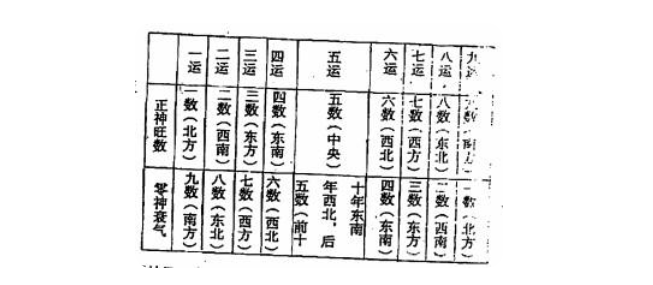 一运
二运
三运
四运
五运
六运
七运
八运
九运
正神旺数
一数（北方）
二数（西南）
三数（东方）
四数（东南）
五数（中央）
六数（西北）
七数（西方）
八数（东北）
九数（南方）
零神衰气
九数（南方）
八数（东北）
七数（西方）
六数（西北）
五数（前十
年西北，后
十年东南
四数（东南）
三数（东方）
二数（西南）
一数（北方）